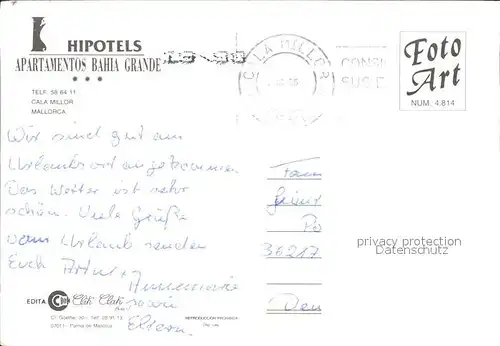 HIPOTELS
APARTAMENTOS BAHIA GRANDE
TELF. 58 64 11
CALA MILLOR
MALLORCA
CALA MILLOR
CONSI
SUS
Foto
Art
NUM. 4.814
Wir sind gut am
Urlaubsort angekommen
Das Wetter ist sehr
schön. Viele Grüße
vom Urlaub senden
Euch Artur + Annemarie
sowie
Eltern.
Fam
36217
privacy protection
Datenschutz
EDITA Clik Clak
07011 - Palma de Mallorca